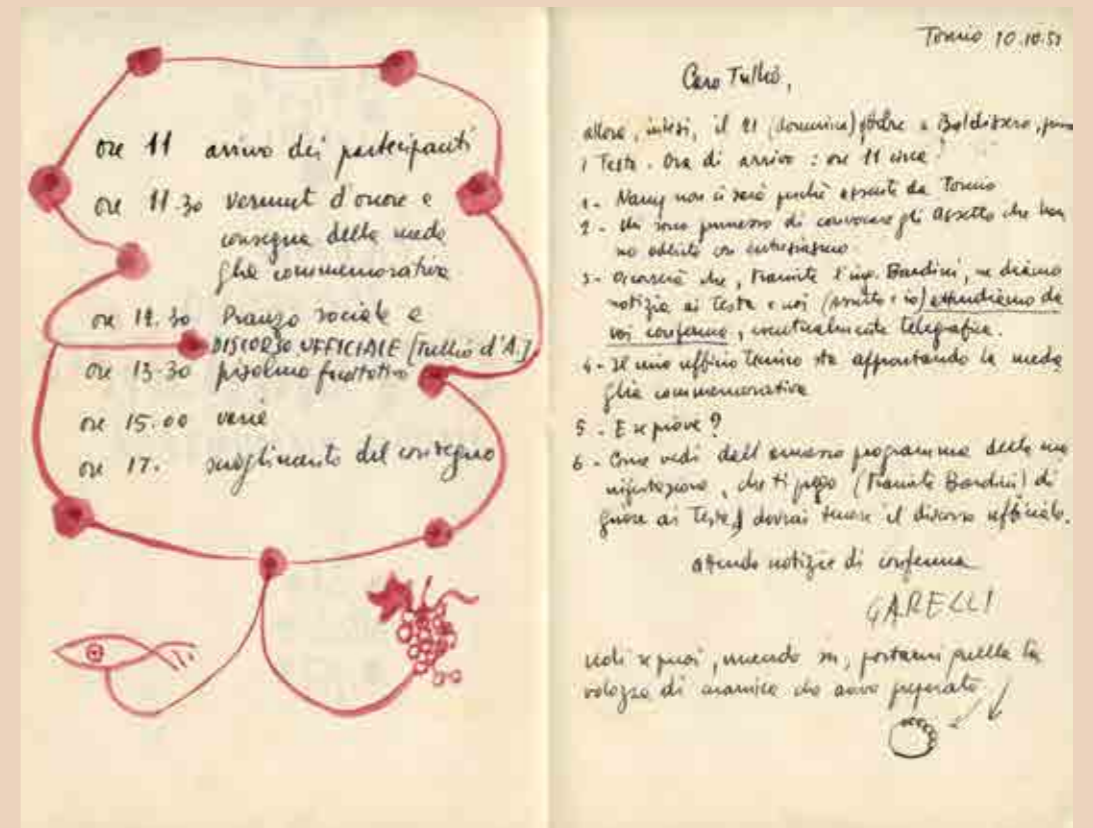 ore 11 arrivo dei partecipanti
ore 11.30 vermut d'onore e
consegna della meda
glia commemorativa
ore 12.30 Pranzo sociale e
DISCORSO UFFICIALE [Tullio d'A.]
ore 13.30 pisolino facoltativo
ore 15.00 varie
ore 17. scioglimento del convegno
Torino 10.10.51
Caro Tullio,
allora, intesi, il 21 (domenica) a Baldissero,
i Testa. Ora di arrivo: ore 11 circa.
1- Nany non ci sarà perché assente da Torino
2- Mi sono permesso di convocare gli Assetto che han
no aderito con entusiasmo
3- Occorrerà che, tramite l'ing. Bardini, ne diamo
notizia ai Testa e noi (Assetto e io) attendiamo da
voi conferma, eventualmente telegrafica.
4- Il mio ufficio tecnico sta approntando la meda
glia commemorativa
5- E se piove?
6- Come vedi dall'annesso programma della ma
nifestazione, che ti prego (tramite Bardini) di
ai Testa, dovrai tenere il discorso ufficiale.
attendo notizie di conferma
GARELLI
vedi se puoi, venendo su, portarmi quella ta
volozza di ceramica che avevo preparato